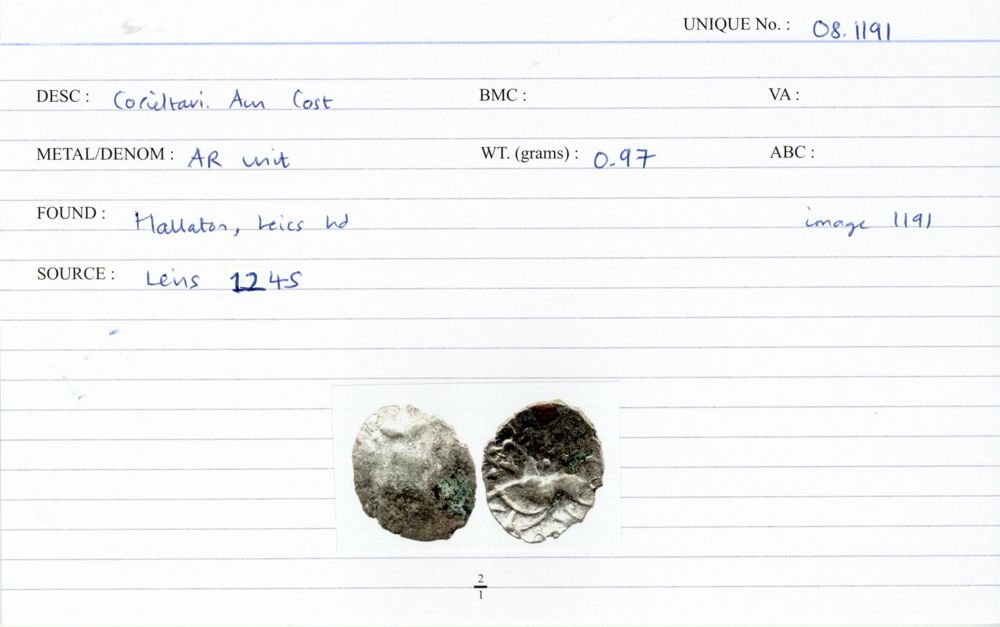 UNIQUE No. : 08.1191
DESC : Corieltavi. Aun Cost BMC : VA :
METAL/DENOM : AR unit WT. (grams) : 0.97 ABC :
FOUND : Hallaton, Leics hd image 1191
SOURCE : Leins 1245
2
1